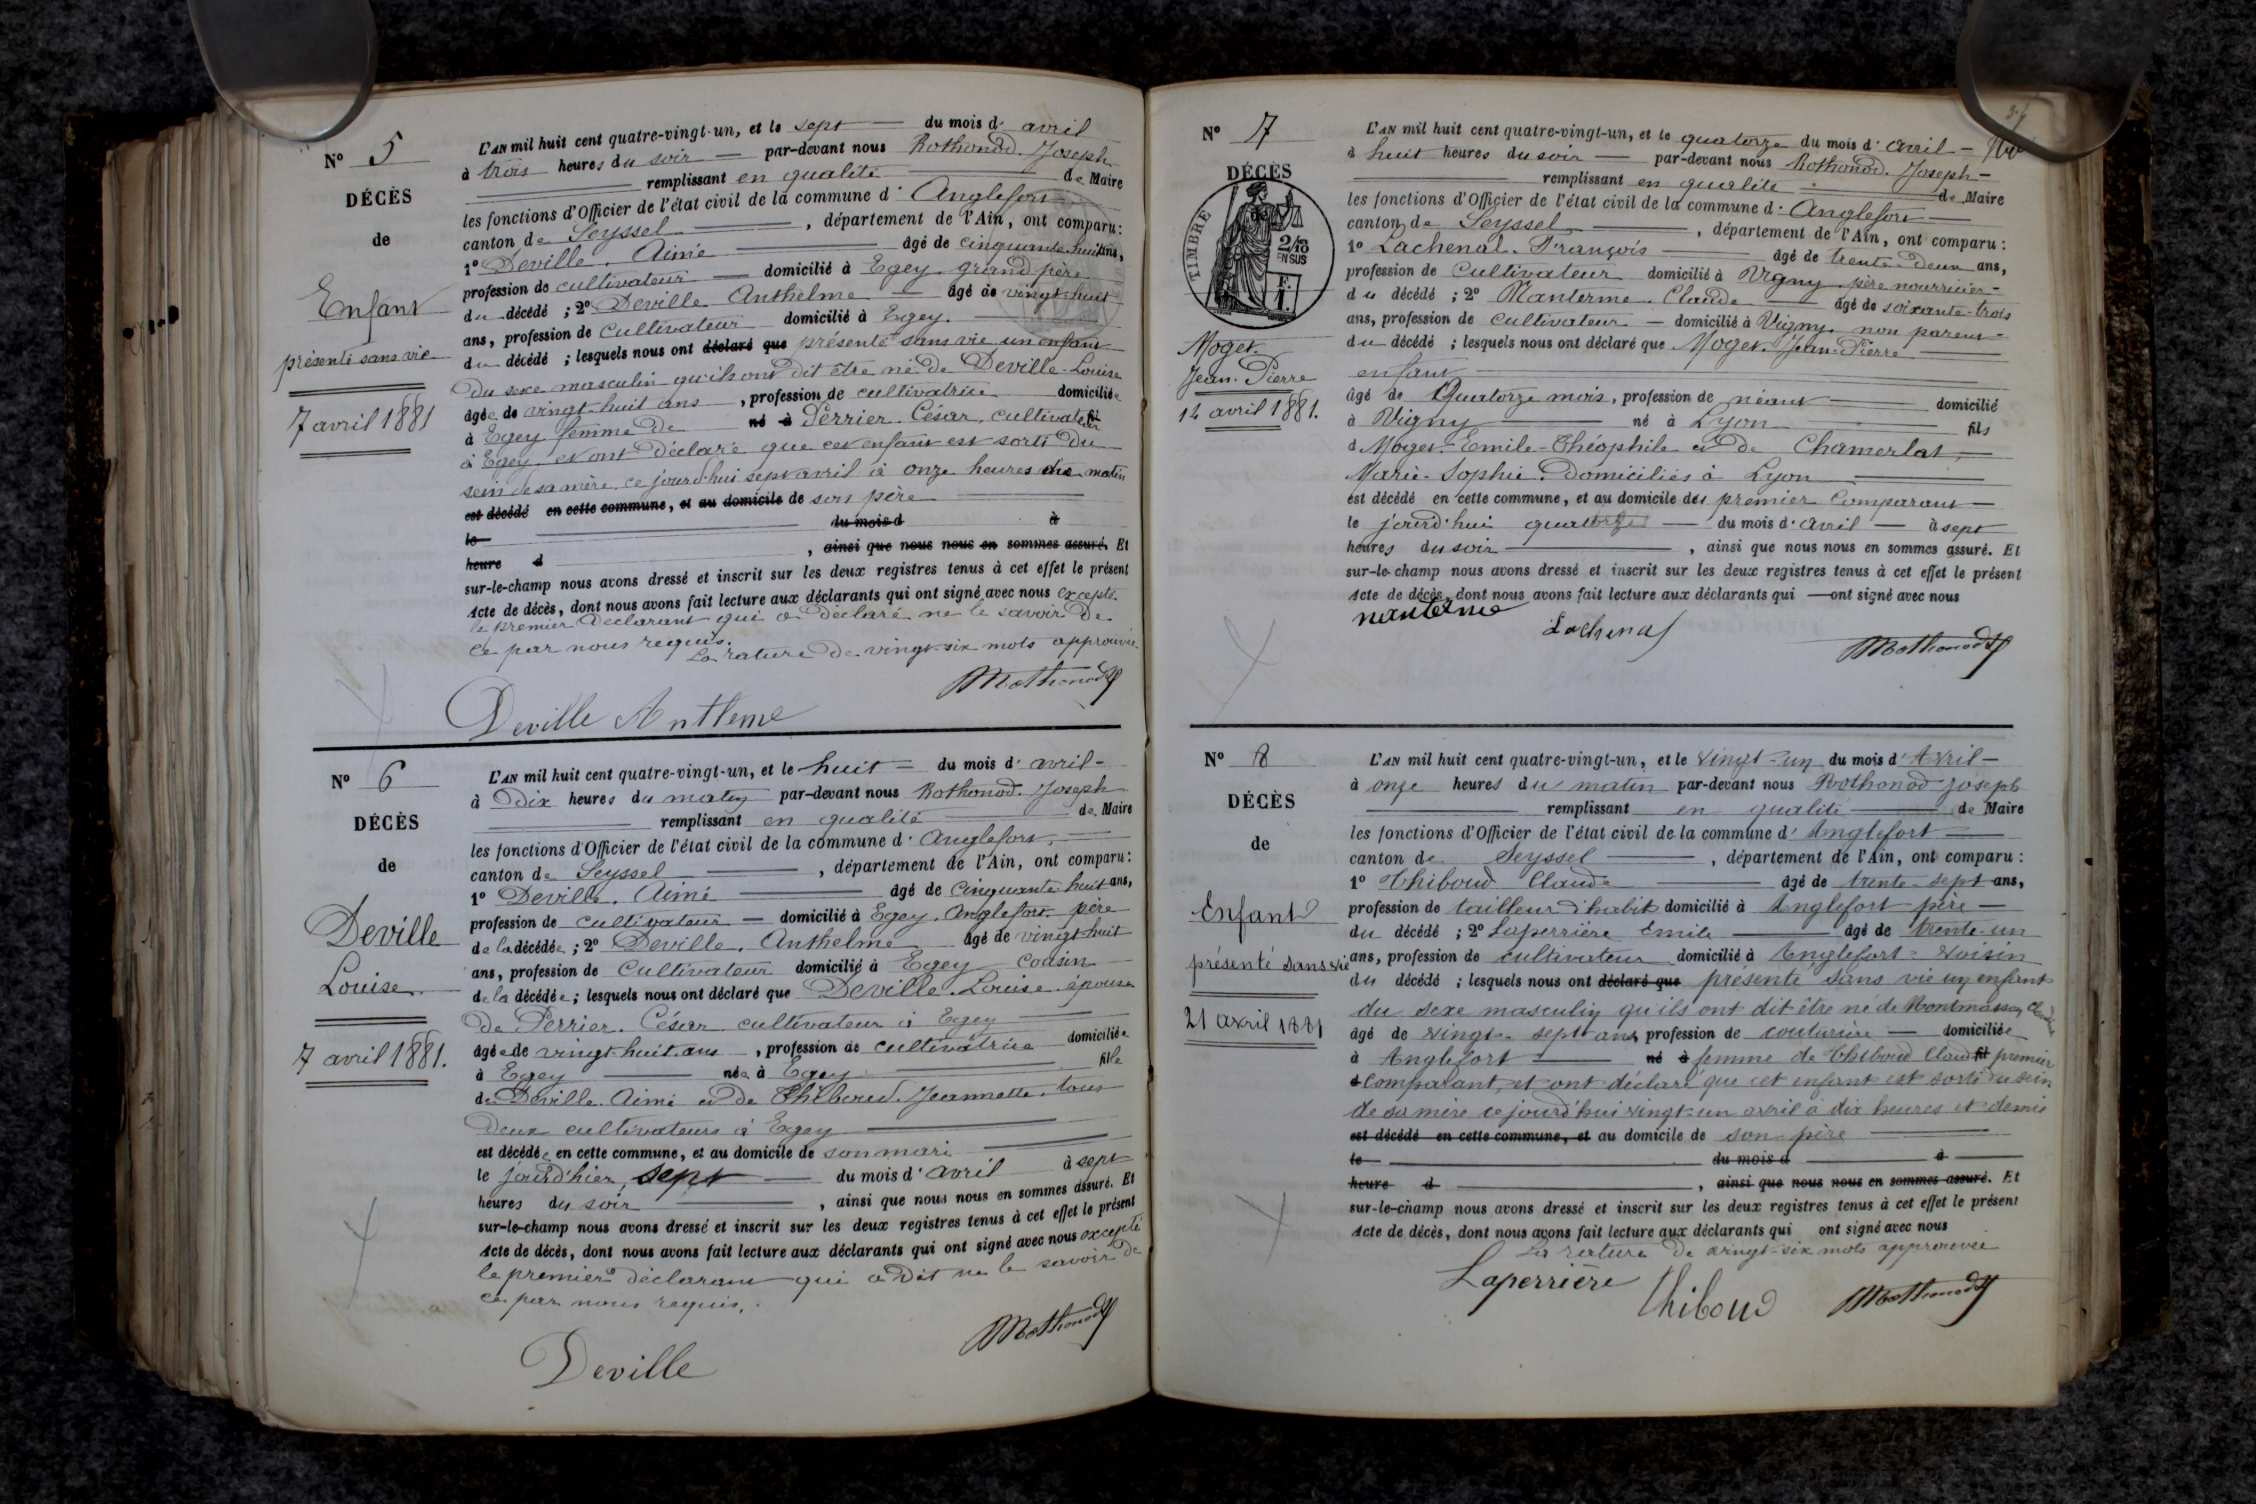 N° 5
DÉCÈS
de
Enfant
présenté sans vie
7 avril 1881
L'AN mil huit cent quatre-vingt-un, et le sept du mois d' avril
à trois heures du soir par-devant nous Rothonod. Joseph
remplissant en qualité de Maire
les fonctions d'Officier de l'état civil de la commune d' Anglefort
canton de Seyssel, département de l'Ain, ont comparu:
1° Deville. Aimé âgé de cinquante-huit ans,
profession de cultivateur domicilié à Egey. grand père
du décédé; 2° Deville Anthelme âgé de vingt-huit
ans, profession de cultivateur domicilié à Egey.
du décédé; lesquels nous ont déclaré que présenté sans vie un enfant
du sexe masculin qu'ils ont dit être né de Deville Louise
âgée de vingt-huit ans, profession de cultivatrice domiciliée
à Egey femme de né à Perrier. César, cultivateur
à Egey. et ont déclaré que cet enfant est sorti du
sein de sa mère ce jourd'hui sept avril à onze heures du matin
est décédé en cette commune, et au domicile de son père
le du mois d à
heure d, ainsi que nous nous en sommes assuré. Et
sur-le-champ nous avons dressé et inscrit sur les deux registres tenus à cet effet le présent
Acte de décès, dont nous avons fait lecture aux déclarants qui ont signé avec nous excepté
le premier déclarant qui a déclaré ne le savoir de
ce par nous requis.
La rature de vingt-six mots approuvée
Deville Antleme
N° 6
DÉCÈS
de
Deville
Louise
7 avril 1881.
L'AN mil huit cent quatre-vingt-un, et le huit du mois d' avril
à Dix heures du matin par-devant nous Rothonod. Joseph
remplissant en qualité de Maire
les fonctions d'Officier de l'état civil de la commune d' Anglefort
canton de Seyssel, département de l'Ain, ont comparu:
1° Deville. Aimé âgé de cinquante-huit ans,
profession de cultivateur domicilié à Egey. Anglefort. père
de la décédée; 2° Deville. Anthelme âgé de vingt-huit
ans, profession de cultivateur domicilié à Egey cousin
de la décédée; lesquels nous ont déclaré que Deville. Louise. épouse
de Perrier. César cultivateur à Egey
âgée de vingt-huit ans, profession de cultivatrice domiciliée
à Egey née à Egey fille
de Deville. Aimé et de Thiboud. Jeannette. tous
deux cultivateurs à Egey
est décédée en cette commune, et au domicile de son mari
le jourd'hier, sept du mois d' avril à sept
heures du soir, ainsi que nous nous en sommes assuré. Et
sur-le-champ nous avons dressé et inscrit sur les deux registres tenus à cet effet le présent
Acte de décès, dont nous avons fait lecture aux déclarants qui ont signé avec nous excepté
le premier déclarant qui a dit ne le savoir de
ce par nous requis.
Deville
N° 7
DÉCÈS
TIMBRE
2/10
EN SUS
Moget.
Jean-Pierre
14 avril 1881.
L'AN mil huit cent quatre-vingt-un, et le quatorze du mois d' avril
à huit heures du soir par-devant nous Rothonod. Joseph
remplissant en qualité de Maire
les fonctions d'Officier de l'état civil de la commune d' Anglefort
canton de Seyssel, département de l'Ain, ont comparu:
1° Lachenal. François âgé de trente-deux ans,
profession de cultivateur domicilié à Vigny. père nourricier
du décédé; 2° Nanterme. Claude âgé de soixante-trois
ans, profession de cultivateur domicilié à Vigny. non parent
du décédé; lesquels nous ont déclaré que Moget. Jean-Pierre
enfant
âgé de Quatorze mois, profession de néant domicilié
à Vigny né à Lyon fils
d Moget-Emile-Théophile et de Chamerlat
Marie-Sophie. Domiciliés à Lyon
est décédé en cette commune, et au domicile du premier comparant
le jourd'hui quatorze du mois d' avril à sept
heures du soir, ainsi que nous nous en sommes assuré. Et
sur-le-champ nous avons dressé et inscrit sur les deux registres tenus à cet effet le présent
Acte de décès, dont nous avons fait lecture aux déclarants qui ont signé avec nous
nanterme
Lachenal
N° 8
DÉCÈS
de
Enfant
présenté sans vie
21 avril 1881
L'AN mil huit cent quatre-vingt-un, et le vingt-un du mois d' Avril
à onze heures du matin par-devant nous Rothonod Joseph
remplissant en qualité de Maire
les fonctions d'Officier de l'état civil de la commune d' Anglefort
canton de Seyssel, département de l'Ain, ont comparu:
1° Thiboud Claude âgé de trente-sept ans,
profession de tailleur d'habit domicilié à Anglefort père
du décédé; 2° Laperrière Emile âgé de trente-un
ans, profession de cultivateur domicilié à Anglefort voisin
du décédé; lesquels nous ont déclaré que présenté sans vie un enfant
du sexe masculin qu'ils ont dit être né de Montmasson
âgé de vingt-sept ans profession de couturière domiciliée
à Anglefort né à femme de Thiboud Claude fil premier
d comparant, et ont déclaré que cet enfant est sorti du sein
de sa mère ce jourd'hui vingt-un avril à dix heures et demie
est décédé en cette commune, et au domicile de son père
le du mois d à
heure d, ainsi que nous nous en sommes assuré. Et
sur-le-champ nous avons dressé et inscrit sur les deux registres tenus à cet effet le présent
Acte de décès, dont nous avons fait lecture aux déclarants qui ont signé avec nous
La rature de vingt-six mots approuvée
Laperrière
Thiboud